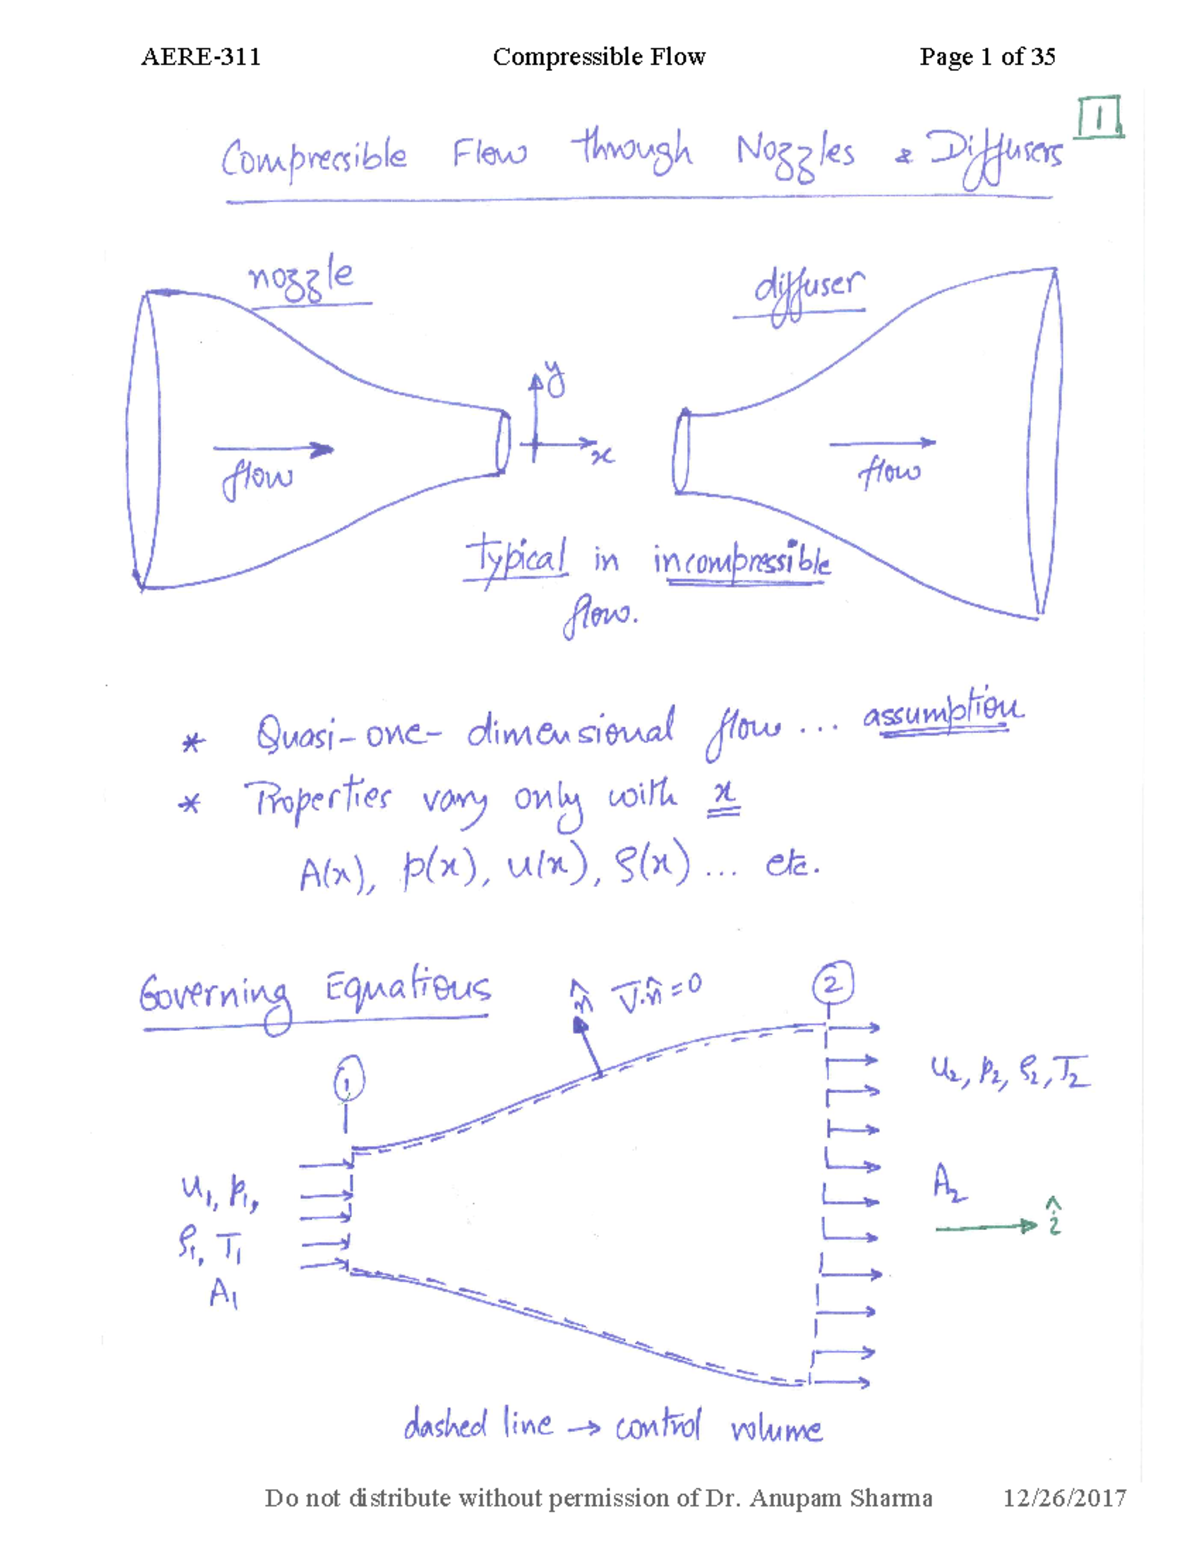 AERE-311 Compressible Flow Page 1 of 35
1
Compressible Flow through Nozzles & Diffusers
nozzle
diffuser
y
x
flow
flow
typical in incompressible
flow.
* Quasi-one-dimensional flow ... assumption
* Properties vary only with x
A(x), p(x), u(x), ρ(x) ... etc.
Governing Equations
n̂ V̄.n̂ = 0
2
1
u₂, p₂, ρ₂, T₂
u₁, p₁,
ρ₁, T₁
A₁
A₂
î
dashed line → control volume
Do not distribute without permission of Dr. Anupam Sharma 12/26/2017